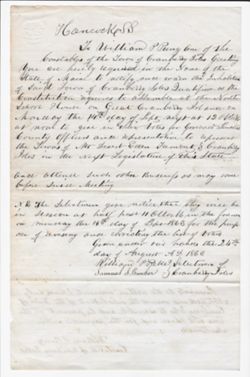 Hancock SS.
To William P Preby one of the
Constables of the Town of Cranberry Isles Greeting
You are hereby required in the Name of the
State of Maine to notify and warn the Inhabitants
of said Town of Cranberry Isles Qualified as the
Constitution requires to assemble at the North
School House on Great Cranberry Island on
Monday the 14th day of Sept. next at 10 Oclock
to give in their Votes for Governor Senators
County Officers and Representative to represent
the Towns of Mt Desert Eden Tremont, & Cranberry
Isles in the next Legislature of this State
and attend such other business as may come
before said Meeting
N B The Selectmen give notice that they will be
in session at half past 11 Oclock in the forenoon
on Monday the 14th day of Sept 1863 for the purpose
of revising and correcting the list of Voters
Given under our hands the 24th
day of August A.D. 1863
William P Selectmen of
Samuel S. Cranberry Isles